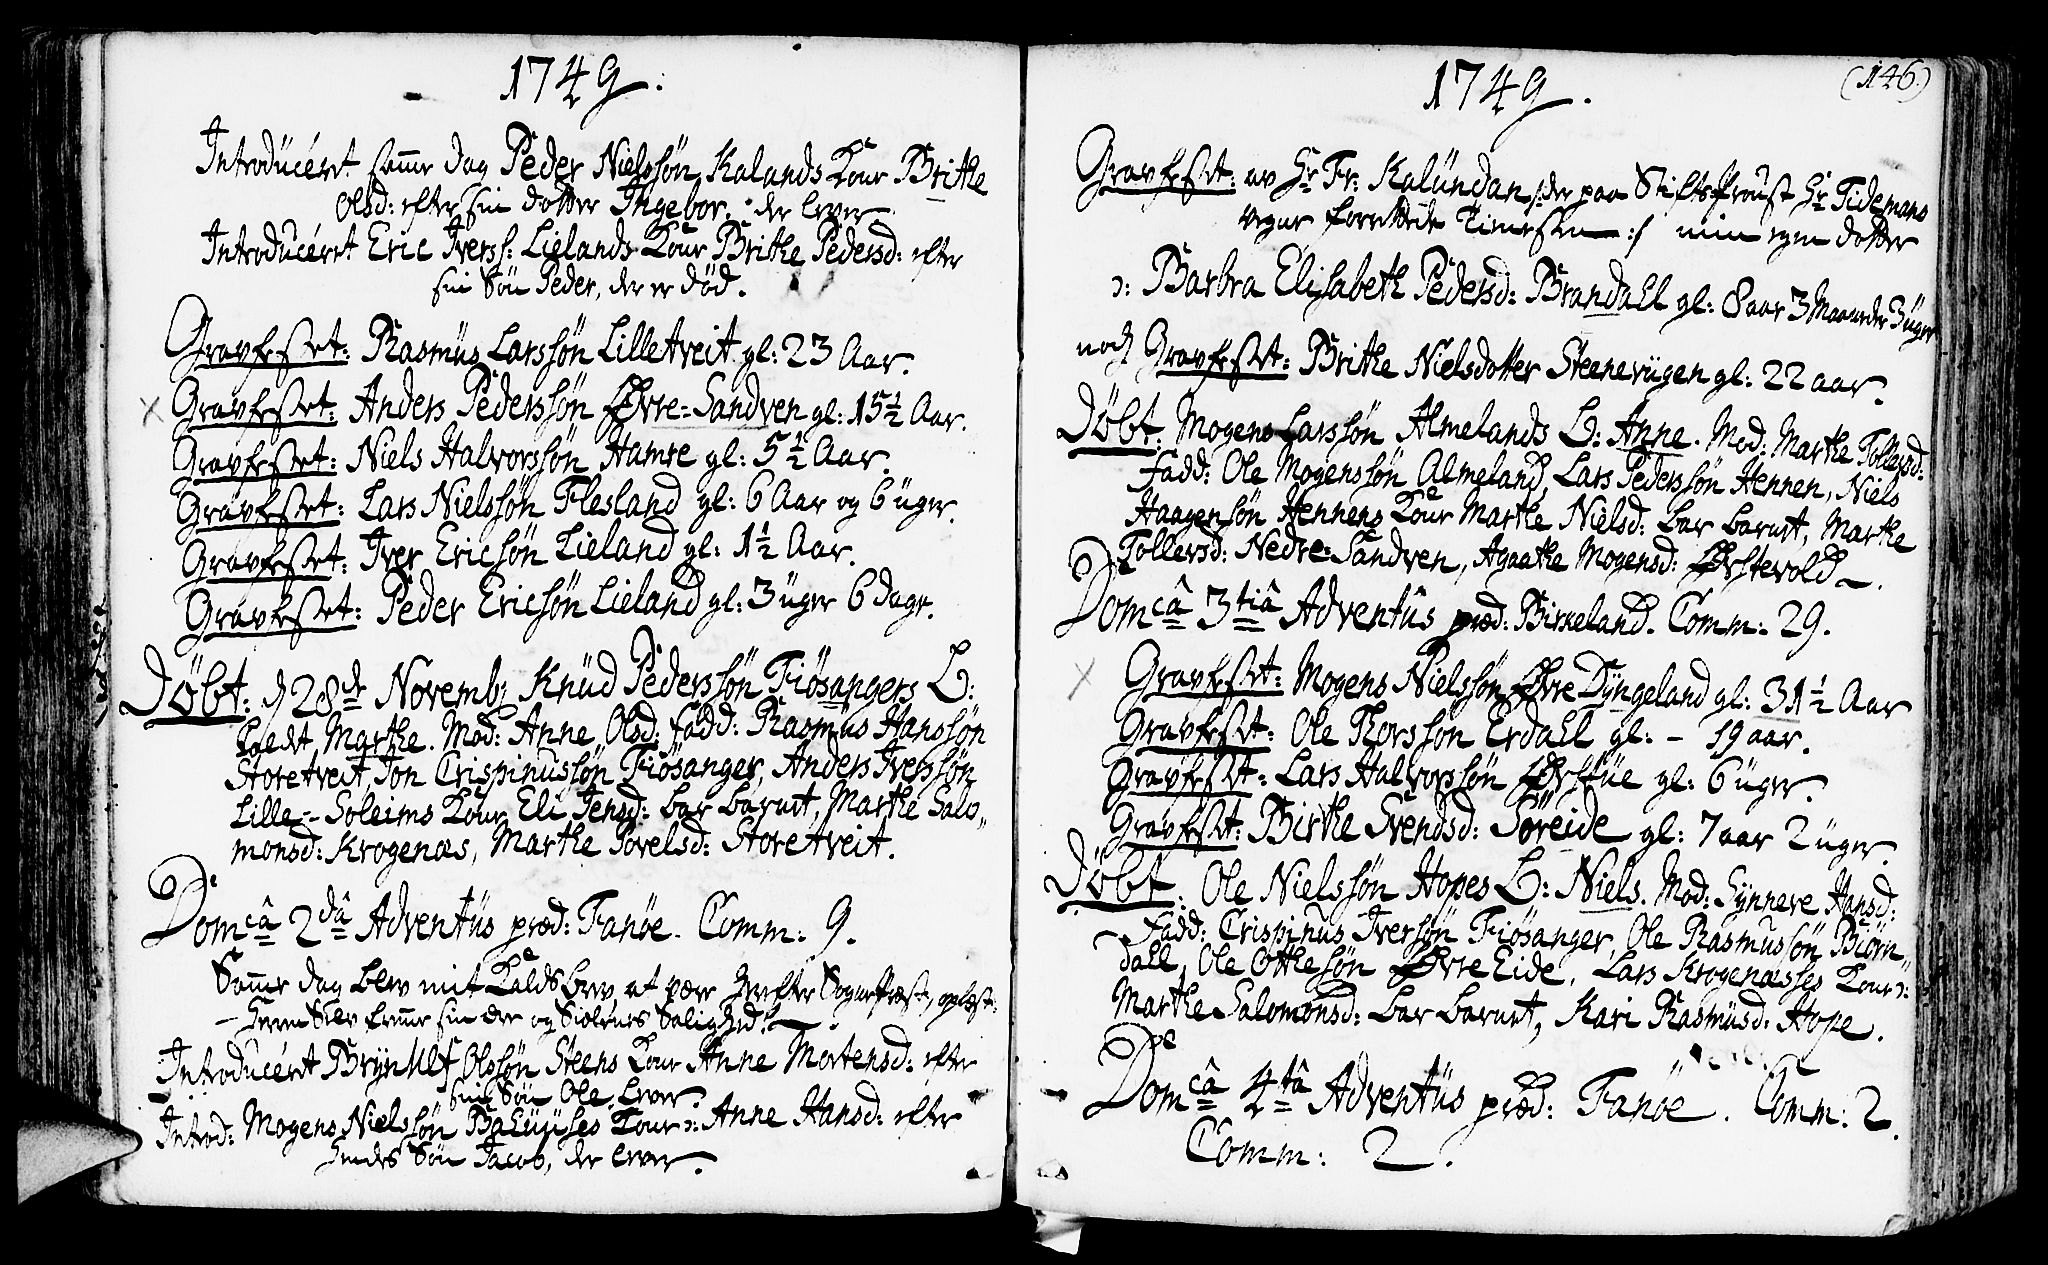 1749.
Introducéret samme dag Peder Nielssøn Kalands Kone Brithe
Olsd: efter sin dotter Ingebor. der lever
Introducéret Eric Iverss: Lielands Kone Brithe Pedersd: efter
sin Søn Peder, der er død.
Gravfæstet: Rasmus Larssøn Lilletveit gl: 23 Aar.
Gravfæstet: Anders Pederssøn Øvre=Sandven gl: 15½ Aar.
Gravfæstet: Niels Halvorssøn Hamre gl: 5½ Aar.
Gravfæstet: Lars Nielssøn Flesland gl: 6 Aar og 6 uger.
Gravfæstet: Iver Ericsøn Lieland gl: 1½ Aar.
Gravfæstet: Peder Ericsøn Lieland gl: 3 uger 6 dage.
Døbt: d 28de Novemb: Knud Pederssøn Fiøsangers B:
kaldt Marthe. Mod: Anne Olsd: Fadd: Rasmus Hanssøn
Storetveit, Jon Crispinussøn Fiøsanger, Anders Iverssøn
Lille=Soleims Kone Eli Jensd: bar barnet, Marthe Salo,,
monsd: Krogenæs, Marthe Povelsd: Storetveit.
Domcâ 2dâ Adventûs præd: Fanøe. Comm: 9.
Samme dag blev mit Kalds brev, at være Sogne Præst, oplæst:
Herren fremme sin ære og Siælenes Salighed!
Introducéret Brynild Olssøn Steens Kone Anne Mortensd: efter
sin Søn Ole, lever.
Introd: Mogens Nielssøn Kone: Anne Hansd: efter
hendes Søn Jacob, der lever.
1749.
(146)
Gravfæstet: av Hr Fr: Kalundan /: der paa Stifts Provst Hr Tidemans
vegne forrettede Tienesten :/ min egen dotter
ↄ: Barbra Elisabeth Pedersd: Brandahl gl: 8 aar 3 Maaneder 3 uger
noch Gravfæstet: Brithe Nielsdotter Steenevugen gl: 22 aar.
Døbt: Mogens Larssøn Almelands B: Anne. Mod: Marthe Tollersd:
Fadd: Ole Mogenssøn Almeland, Lars Pederssøn Hennen, Niels
Haagensøn Hennens Kone Marthe Nielsd: bar barnet, Marthe
Tollersd: Nedre=Sandven, Agaathe Mogensd: Ørstevold.
Domcâ 3tiâ Adventûs præd: Birkeland. Comm: 29.
Gravfæstet: Mogens Nielssøn Øvre Dyngeland gl: 31½ Aar
Gravfæstet: Ole Thorssøn Erdahl gl: – 19 aar.
Gravfæstet: Lars Halvorssøn gl: 6 uger.
Gravfæstet: Birthe Svendsd: Søreide gl: 7 aar 2 uger.
Døbt: Ole Nielssøn Hopes B: Niels. Mod: Synneve Hansd:
Fadd: Crispinus Iversøn Fiøsanger, Ole Rasmussøn Biørn,,
dahl, Ole Otthesøn Øvre Eide, Lars Krogenæsses Kone ↄ:
Marthe Salomonsd: bar barnet, Kari Rasmusd: Hope.
Domcâ 4tâ Adventûs præd: Fanøe. Comm: 2.
Comm: 2.